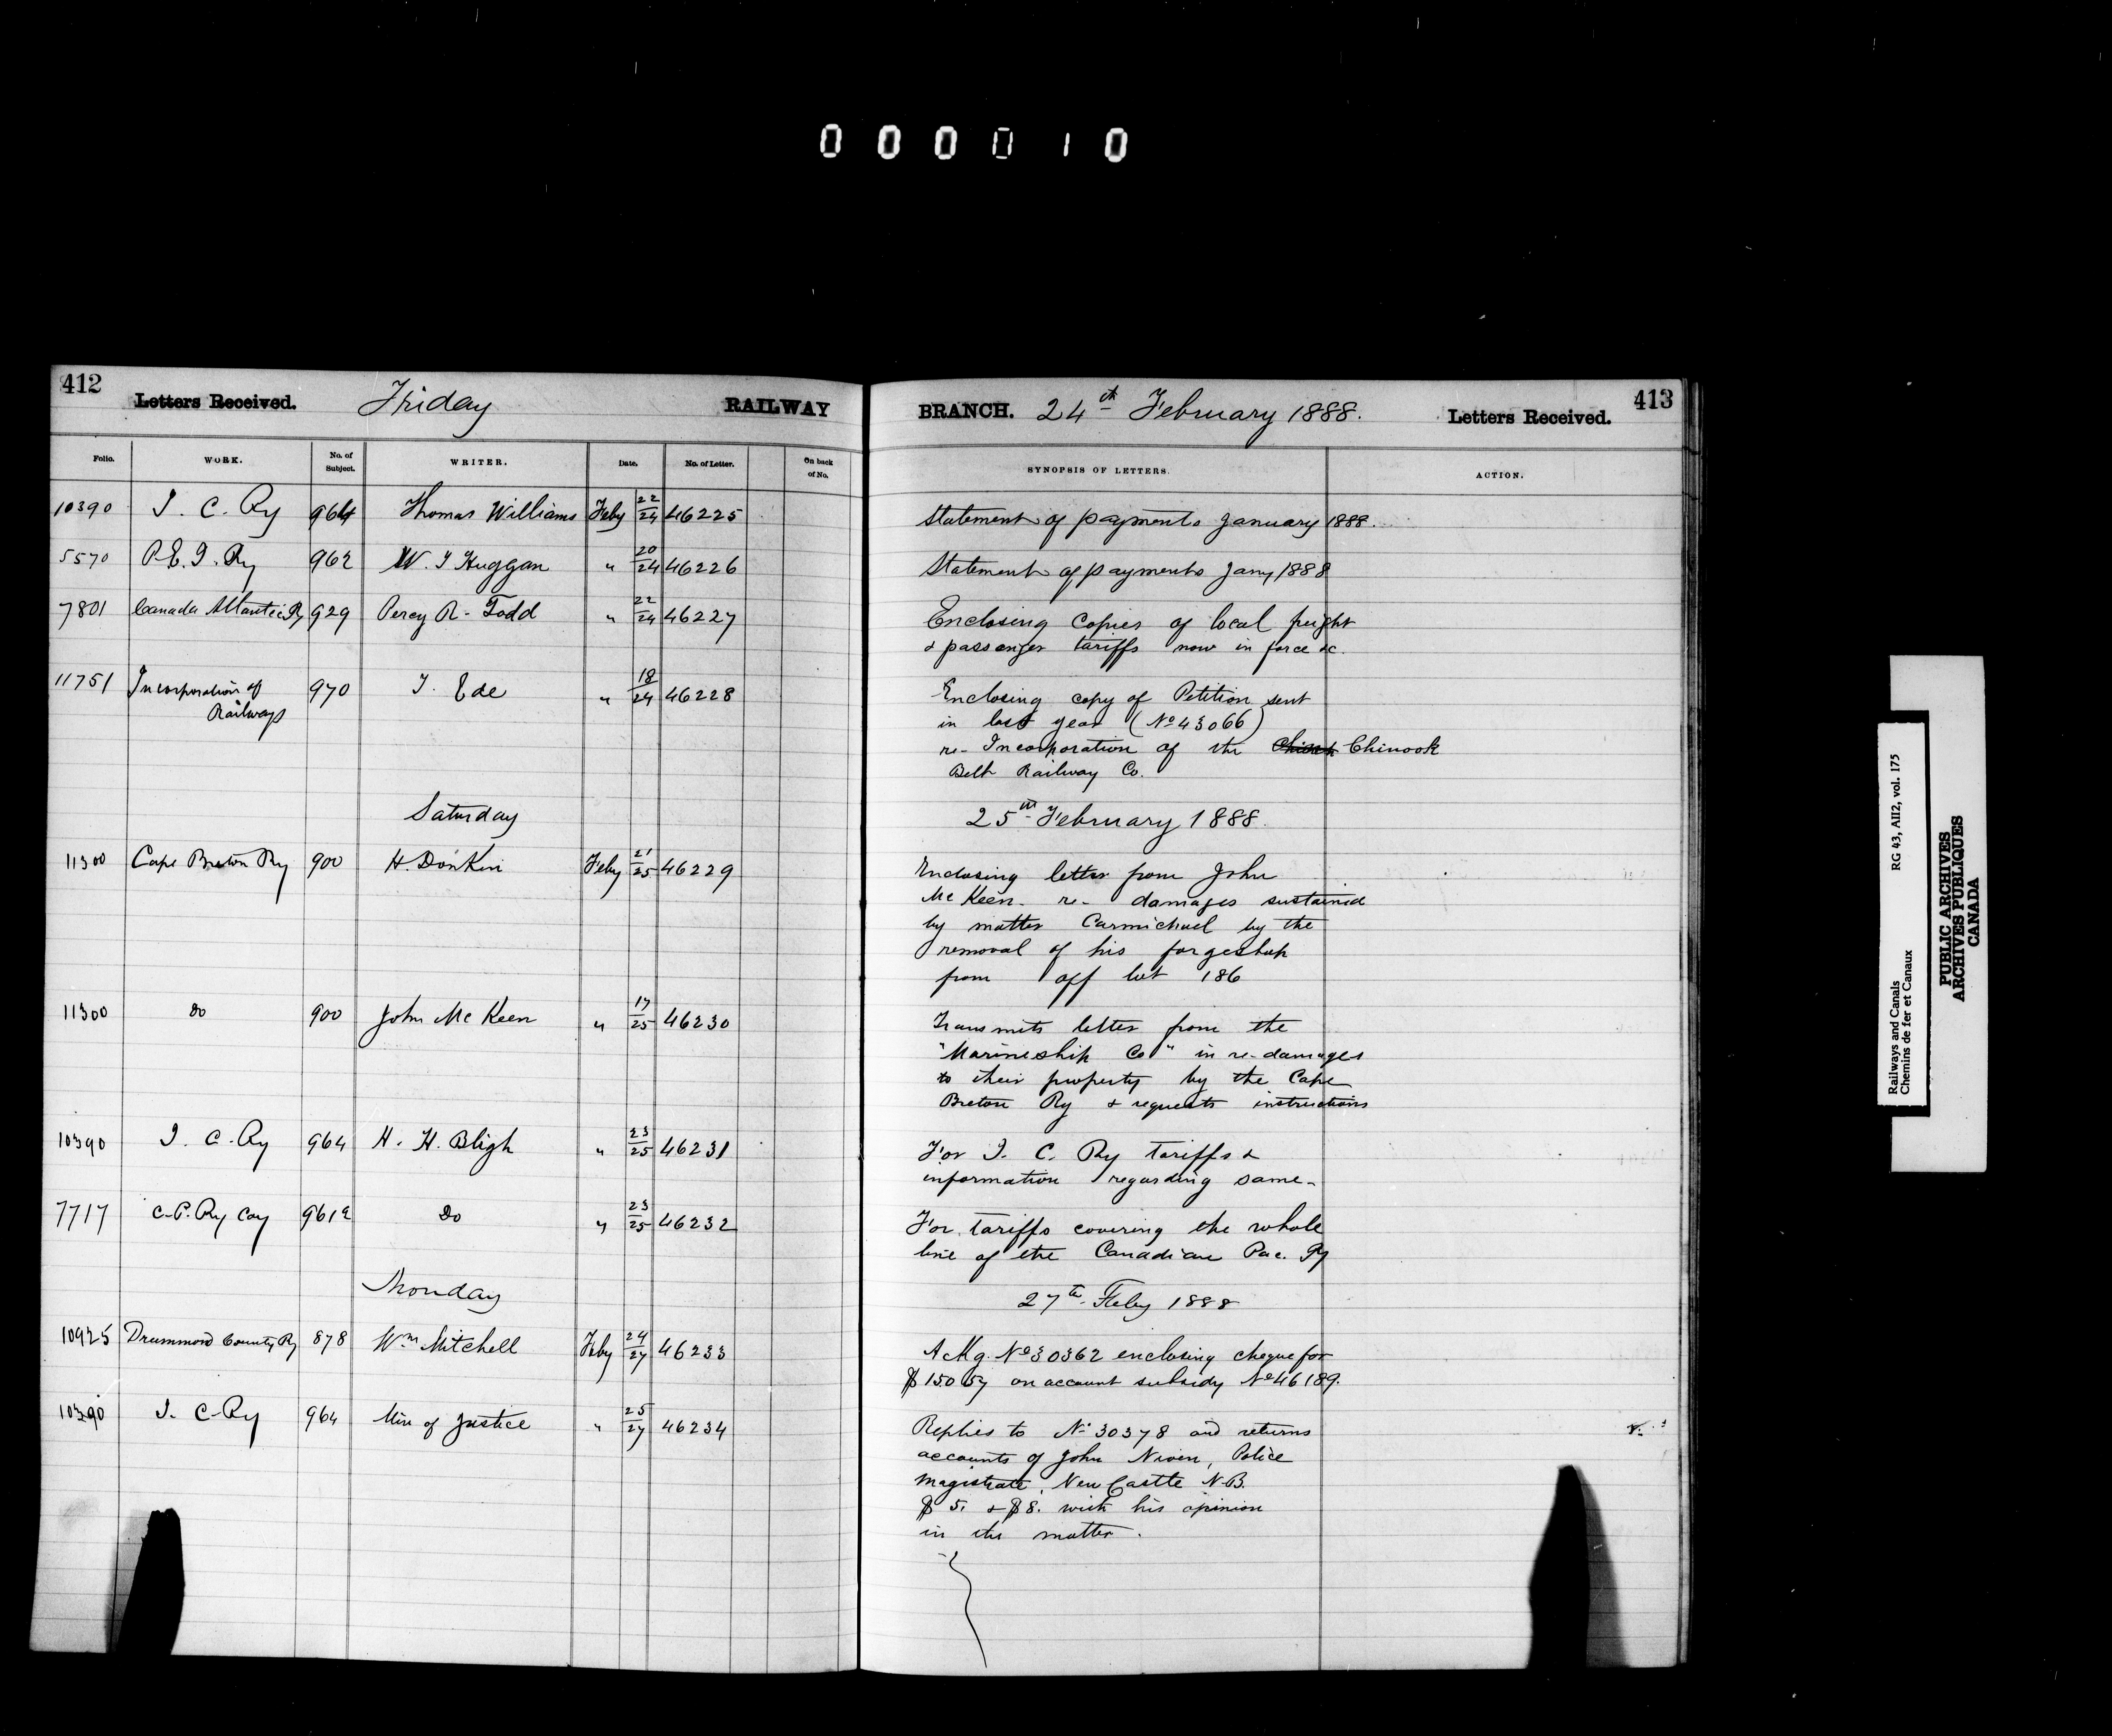 000010
412 Letters Received. Friday RAILWAY BRANCH. 24th February 1888. Letters Received. 413
Folio. WORK. No. of Subject. WRITER. Date. No. of Letter. On back of No. SYNOPSIS OF LETTERS. ACTION.
10390 I. C. Ry 964 Thomas Williams Feby 22/24 46225 Statement of payments January 1888.
5570 P.E.I. Ry 962 W. T Huggan " 20/24 46226 Statement of payments Jany 1888
7801 Canada Atlantic Ry 929 Percy R. Todd " 22/24 46227 Enclosing copies of local freight
& passenger tariffs now in force &c.
11751 Incorporation of Railways 970 T. Ede " 18/24 46228 Enclosing copy of Petition sent
in last year (No 43066)
re- Incorporation of the Chinook
Belt Railway Co.
Saturday 25th February 1888.
11300 Cape Breton Ry 900 H. Donkin Feby 21/25 46229 Enclosing letter from John
McKeen- re- damages sustained
by matter Carmichael by the
removal of his forgeshop
from off lot 186
11300 Do 900 John McKeen " 17/25 46230 Transmits letter from the
"Marineship Co" in re-damages
to their property by the Cape
Breton Ry & requests instructions
10390 I. C. Ry 964 H. H. Bligh " 23/25 46231 For I. C. Ry tariffs &
information regarding same-
7717 C.P. Ry Coy 961 Do " 23/25 46232 For tariffs covering the whole
line of the Canadian Pac. Ry
Monday 27th Feby 1888
10925 Drummond County Ry 878 Wm Mitchell Feby 24/27 46233 Ackg. No 30362 enclosing cheque for
on account subsidy No 46189.
10390 I. C. Ry 964 Min of Justice " 25/27 46234 Replies to No 30378 and returns
accounts of John Niven, Police
Magistrate, New Castle N.B.
$5. & $8. with his opinion
in the matter.
RG 43, AII2, vol. 175
Railways and Canals
Chemins de fer et Canaux
PUBLIC ARCHIVES
ARCHIVES PUBLIQUES
CANADA